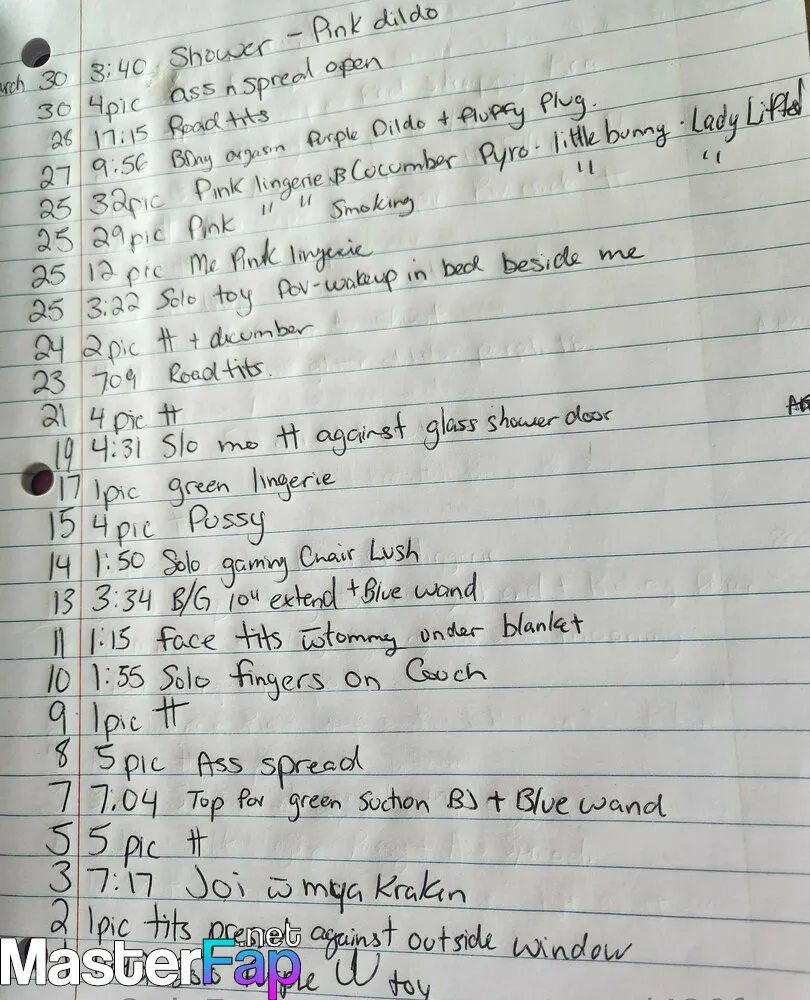 arch 30 3:40 Shower - Pink dildo
30 4pic ass n spread open
28 17:15 Road tits
27 9:56 BDay orgasm Purple Dildo + Fluffy Plug.
25 32pic Pink lingerie B Cocumber Pyro · little bunny · Lady Lifted
25 29pic Pink " " Smoking " "
25 12 pic Me Pink lingerie
25 3:22 Solo toy POV-wakeup in bed beside me
24 2pic tt + cucumber
23 709 Road tits.
21 4 pic tt
19 4:31 Slo mo tt against glass shower door
17 1pic green lingerie
15 4pic Pussy
14 1:50 Solo gaming Chair Lush
13 3:34 B/G 10" extend + Blue wand
11 1:15 face tits w tommy under blanket
10 1:55 Solo fingers on Couch
9 1pic tt
8 5pic Ass spread
7 7:04 Top for green suction BJ + Blue wand
5 5 pic tt
3 7:17 Joi w mya Kraken
2 1pic tits against outside window
toy
MasterFap.net